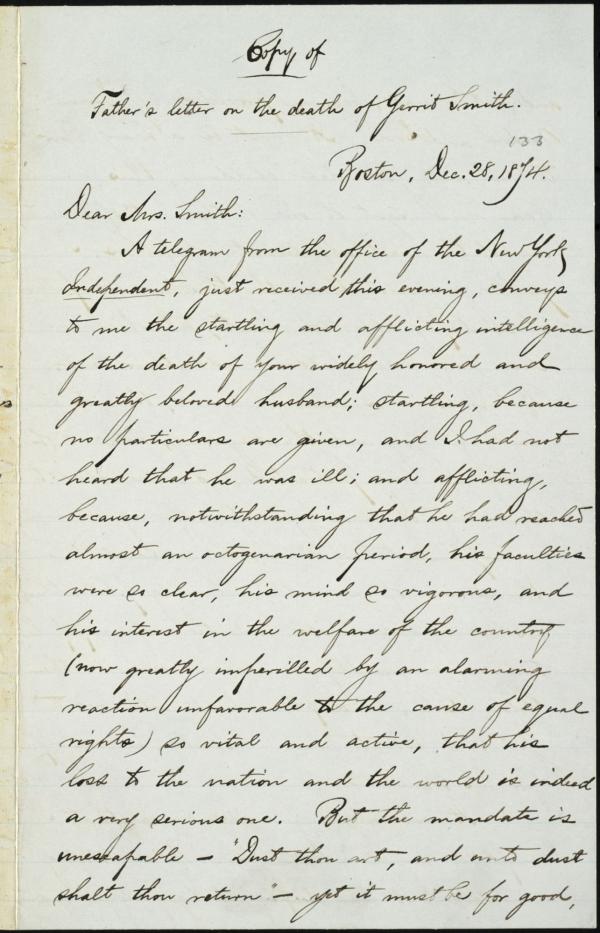 Copy of
Father's letter on the death of Gerrit Smith.
133
Boston, Dec. 28, 1874.
Dear Mrs. Smith:
A telegram from the office of the New York
Independent, just received this evening, conveys
to me the startling and afflicting intelligence
of the death of your widely honored and
greatly beloved husband; startling, because
no particulars are given, and I had not
heard that he was ill; and afflicting,
because, notwithstanding that he had reached
almost an octogenarian period, his faculties
were so clear, his mind so vigorous, and
his interest in the welfare of the country
(now greatly imperilled by an alarming
reaction unfavorable to the cause of equal
rights) so vital and active, that his
loss to the nation and the world is indeed
a very serious one. But the mandate is
unescapable — "Dust thou art, and unto dust
shalt thou return" — yet it must be for good,